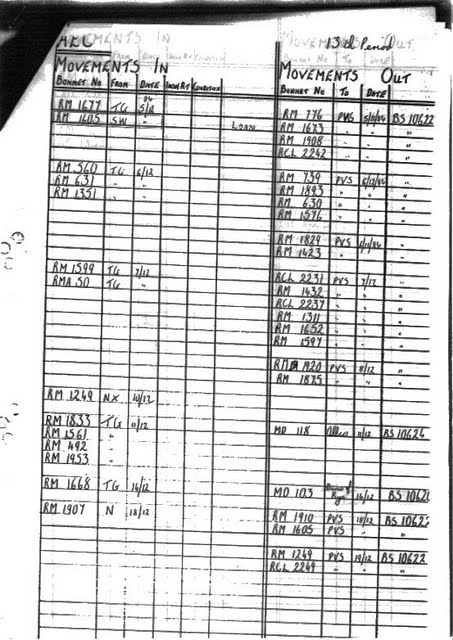 ALL
13th Period
MOVEMENTS IN
BONNET No FROM DATE INW RT CONDITION
RM 1677 TG 5/12 84
RM 1605 SW " LOAN
RM 560 TG 6/12
RM 631 " "
RM 1351 " "
RM 1599 TG 7/12
RMA 50 TG "
RM 1249 NX 10/12
RM 1833 TG 11/12
RM 1561 "
RM 492 "
RM 1953 "
RM 1668 TG 14/12
RM 1907 N 18/12
MOVEMENTS OUT
BONNET No TO DATE
RM 776 PVS 5/12/84 BS 10622
RM 1673 " " "
RM 1908 " " "
RCL 2242 " " "
RM 739 PVS 6/12/84 "
RM 1893 " " "
RM 630 " " "
RM 1576 " " "
RM 1829 PVS 6/12/84 "
RM 1423 " " "
RCL 2231 PVS 7/12 "
RM 1432 " " "
RCL 2237 " " "
RM 1311 " " "
RM 1652 " " "
RM 1597 " " "
RM 1920 PVS 8/12 "
RM 1875 " " "
MD 118 11/12 BS 10624
MD 103 14/12
RM 1910 PVS 18/12 BS 10622
RM 1605 PVS " "
RM 1249 PVS 19/12 BS 10622
RCL 2249 " " "